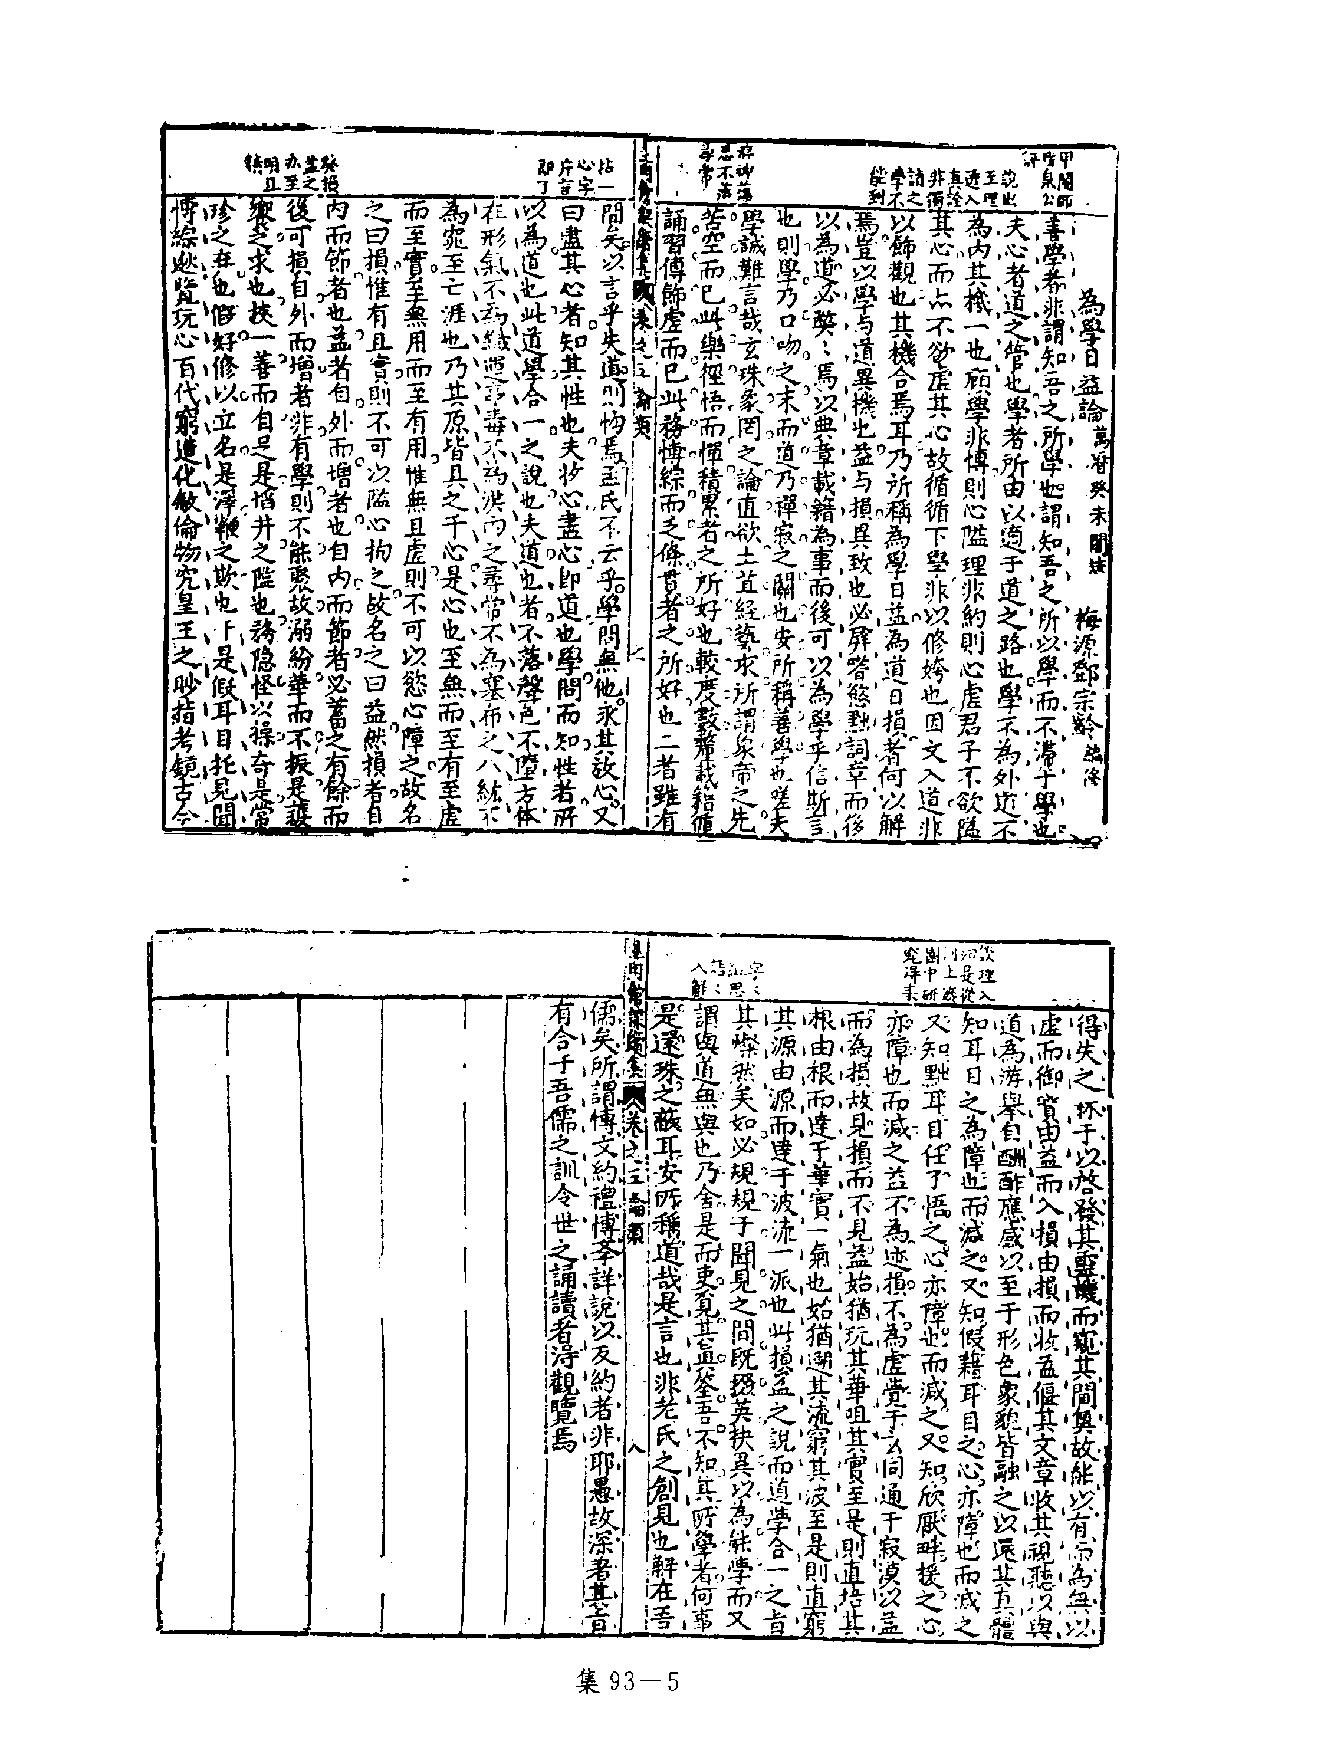 為學日益論 萬曆癸未閣 梅源鄧宗齡
善學者非謂知吾之所學也謂知吾之所以學而不滯于學也
夫心者道之管也學者所由以適于道之路也學不為外道不
為內其機一也顧學非博則心隘理非約則心虛君子不欲隘
其心而亦不欲虛其心故循循下學非以修姱也因文入道非
以飾觀也其機合焉耳乃所稱為學日益為道日損者何以解
焉豈以學与道異機也益与損異致也必屏嗜慾黜詞章而後
以為道必獎〻焉以典章載籍為事而後可以為學乎信斯言
也則學乃口吻之末而道乃禪寂之關也安所稱善學也嗟夫
學誠難言哉玄珠象罔之論直欲土苴經藝求所謂象帝之先
苦空而已此樂徑悟而憚積累者之所好也較度數諳載籍
誦習傅飾虛而已此務博綜而乏條貫者之所好也二者雖有
間矣以言乎失道則均焉孟氏不云乎學問無他求其放心又
曰盡其心者知其性也夫求心盡心即道也學問而知性者所
以為道也此道學合一之說也夫道也者不落聲色不墮方体
在形氣不為纖運亭毒不為洪內之尋常不為塞布之八紘不
為窕至亡涯也乃其原皆具之于心是心也至無而至有至虛
而至實至無用而至有用惟無且虛則不可以慾心障之故名
之曰損惟有且實則不可以隘心拘之故名之曰益然損者自
內而節者也益者自外而增者也自內而節者必蓄之有餘而
後可損自外而增者非有學則不能聚故溺紛華而不振是
之求也挾一善而自足是埳井之隘也務隱怪以操奇是常
珍之棄也假好修以立名是之欺也于是假耳目托見聞
博綜逖覽玩心百代窮造化敘倫物究皇王之眇指考鏡古今
集之三 論類
得失之林于以啓發其靈機而窺其閫奧故能以有而為無以
虛而御實由益而入損由損而收益偃其文章收其視聽以與
道為游舉自酬酢應感以至于形色象貌皆融之以還其真體
知耳目之為障也而減之又知假藉耳目之心亦障也而減之
又知黜耳目任了悟之心亦障也而減之又知欣厭畔援之心
亦障也而減之益不為迹損不為虛覺于玄同通于寂漠以益
而為損故見損而不見益始猶玩其華咀其實至是則直培其
根由根而達于華實一氣也始猶遡其流窮其波至是則直窮
其源由源而達于波流一派也此損益之說而道學合一之旨
其燦然矣如必規規于聞見之間既掇英抉異以為能學而又
謂與道無與也乃舍是而更覓其真筌吾不知其所學者何事
是還珠之蔽耳安所稱道哉是言也非老氏之創見也解在吾
卷之三 論類 八
儒矣所謂博文約禮博学詳說以反約者非耶愚故深著其旨
有合于吾儒之訓令世之誦讀者得觀覽焉
集 93－5